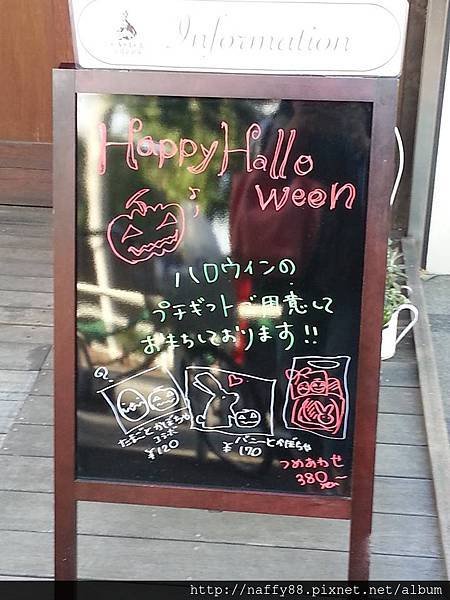 Information
Happy Hallo
ween
ハロウィンの
プチギフトご用意して
おまちしております!!
たまごとかぼちゃ
コラボ
¥120
バニーとかぼちゃ
¥170
つめあわせ
380～
http://naffy88.pixnet.net/album